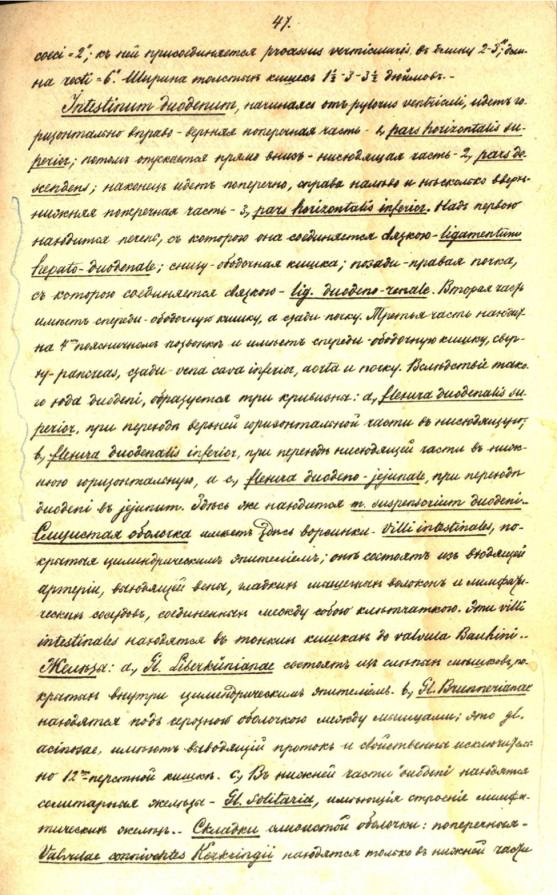 47.
coeci = 2"; къ ней присоединяется processus vermicularis, въ длину 2-3", дли-
на recti = 6". Ширина толстыхъ кишекъ 1½-3-3½ дюймовъ.-
Intestinum duodenum, начинаясь отъ pylorus ventriculi, идетъ го-
ризонтально вправо - верхняя поперечная часть - 1, pars horizontalis su-
perior; потомъ опускается прямо внизъ - нисходящая часть - 2, pars de-
scendens; наконецъ идетъ поперечно, справа налѣво и нѣсколько вверхъ-
нижняя поперечная часть - 3, pars horizontalis inferior. Надъ первою
находится печень, съ которою она соединяется связкою - ligamentum
hepato-duodenale; снизу - ободочная кишка; позади - правая почка,
съ которою соединяется связкою - lig. duodeno-renale. Вторая часть
имѣетъ спереди - ободочную кишку, а сзади почку. Третья часть находит.
на 4мъ поясничномъ позвонкѣ и имѣетъ спереди - ободочную кишку, свер-
ху - pancreas, сзади - vena cava inferior, aorta и почку. Вслѣдствіе тако-
го хода duodeni, образуется три кривизны: a, flexura duodenalis su-
perior, при переходѣ верхней горизонтальной части въ нисходящую;
b, flexura duodenalis inferior, при переходѣ нисходящей части въ ниж-
нюю горизонтальную, и c, flexura duodeno-jejunale, при переходѣ
duodeni въ jejunum. Здѣсь же находится m. suspensorium duodeni.-
Слизистая оболочка имѣетъ здѣсь ворсинки - Villi intestinales, по-
крытыя цилиндрическимъ эпителіемъ; онѣ состоятъ изъ входящей
артеріи, выходящей вены, гладкихъ мышечныхъ волоконъ и лимфати-
ческихъ сосудовъ, соединенныхъ между собою клѣтчаткою. Эти villi
intestinales находятся въ тонкихъ кишкахъ до valvula Bauhini..
Железа: a, Gl. Liberkünianae состоятъ изъ слѣпыхъ мѣшковъ, по-
крытыхъ внутри цилиндрическимъ эпителіемъ. b, Gl. Brunnerianae
находятся подъ серозною оболочкою между мышцами; это gl.
acinosae, имѣютъ выводящій протокъ и свойственны исключительно
12ти-перстной кишкѣ. c, Въ нижней части duodeni находятся
солитарныя железы - Gl. Solitaria, имѣющія строеніе лимфа-
тическихъ железъ.- Складки слизистой оболочки: поперечныя -
Valvulae conniventes Kerkringii находятся только въ нижней части